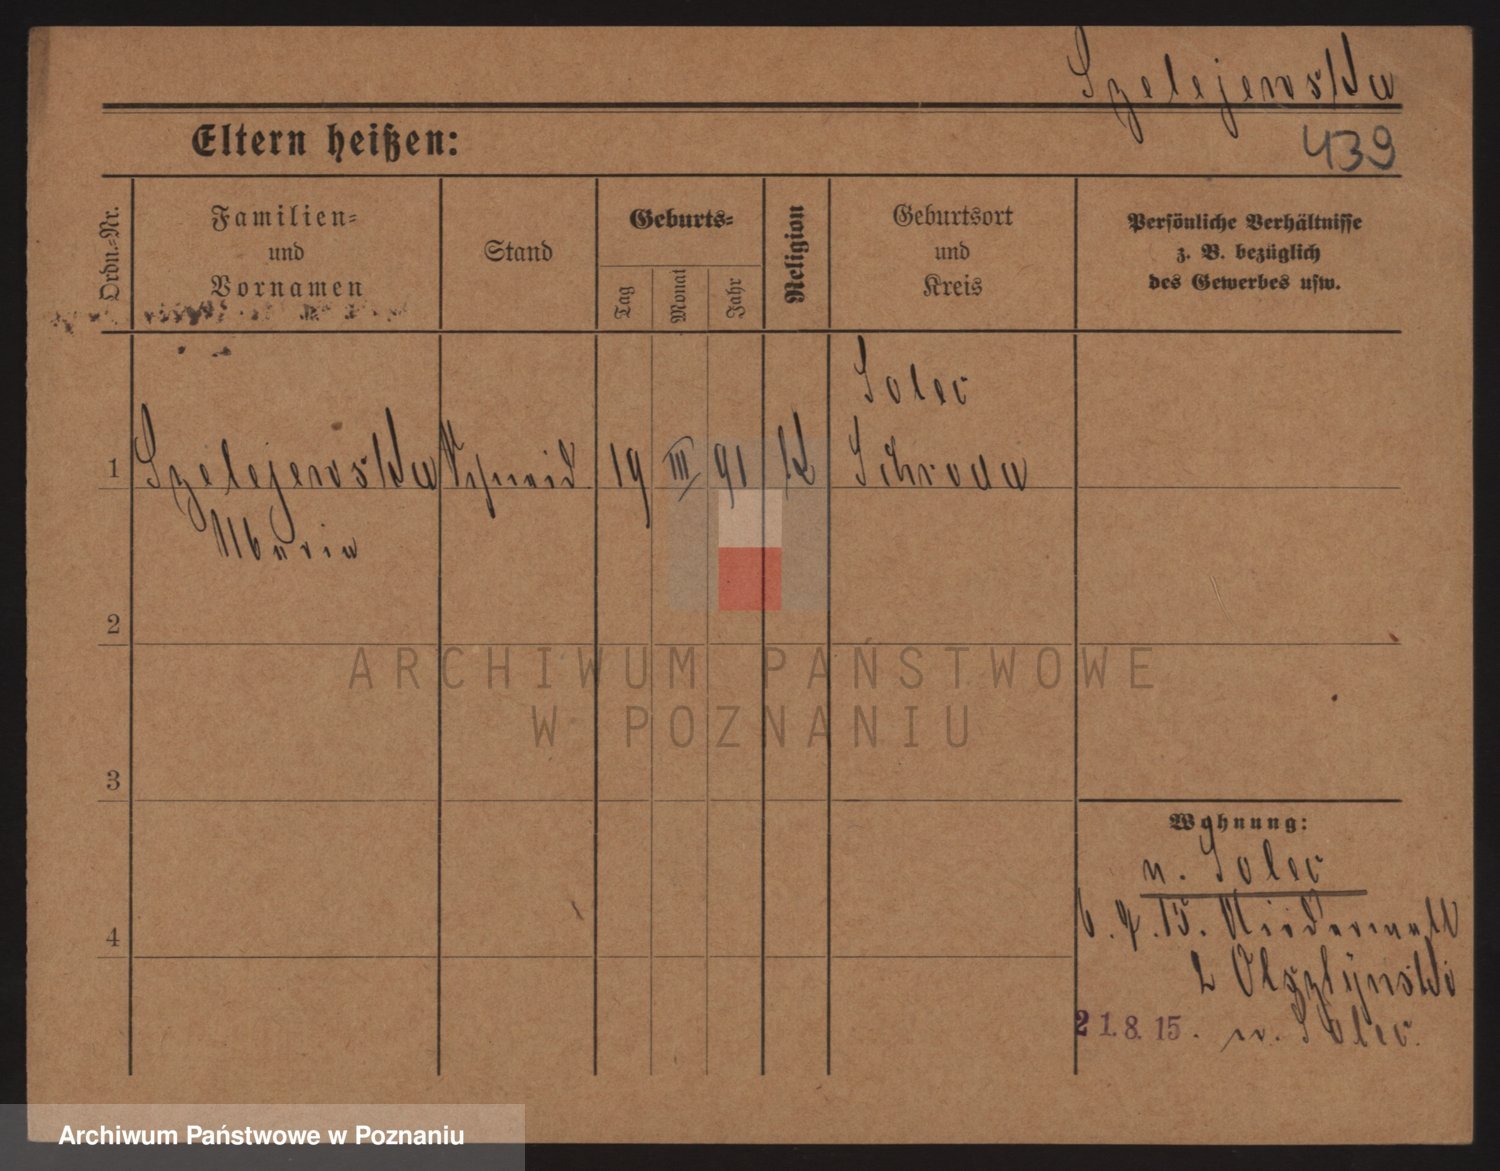 Szelejewska
439
Eltern heißen:
Ordn.-Nr.
Familien-
und
Vornamen
Stand
Geburts-
Tag
Monat
Jahr
Religion
Geburtsort
und
Kreis
Persönliche Verhältnisse
z. B. bezüglich
des Gewerbes usw.
Solec
1 Szelejewska 19 III 91 K Schroda
Maria
2
3
4
Wohnung:
n. Solec
6.7.15.
Olszynski
21.8.15. n. Solec.
ARCHIWUM PAŃSTWOWE
W POZNANIU
Archiwum Państwowe w Poznaniu